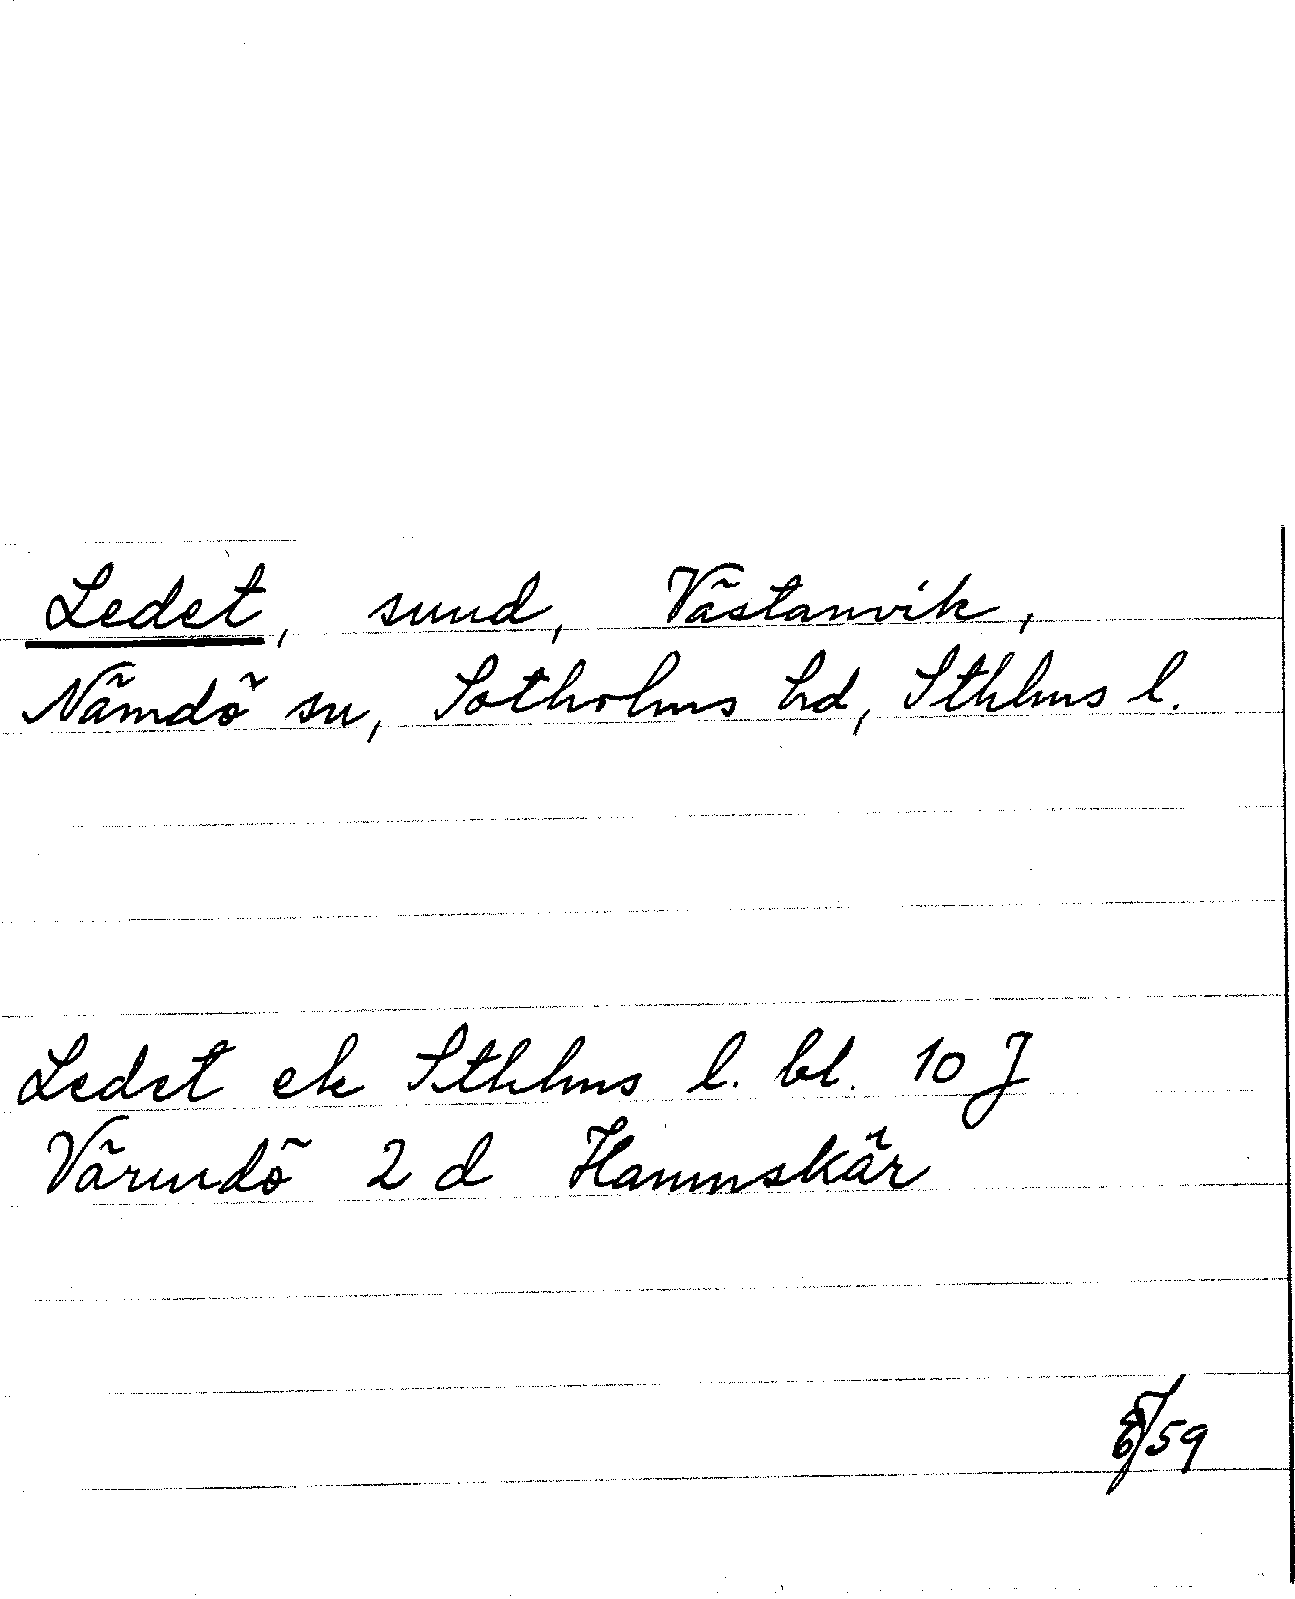 Ledet, sund, Västanvik,
Nämdö sn, Sotholms hd, Sthlms l.
Ledet ek Sthlms l. bl. 10 J
Värmdö 2 d Hammskär
/59